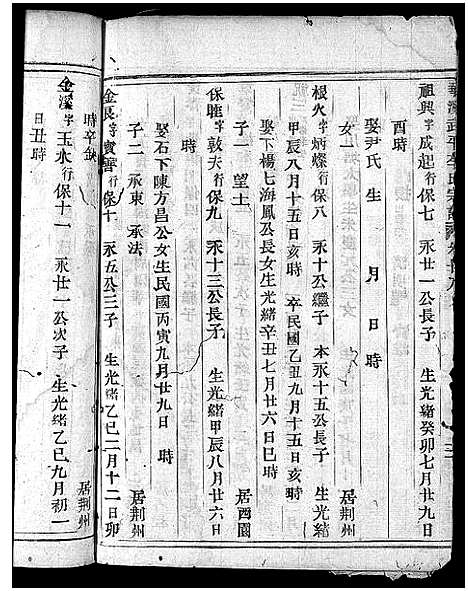 祖興字成起行保七 永廿一公長子 生光緒癸卯七月廿九日
酉時
娶尹氏生 月 日 時
女一 居荆州
根火字炳燦行保八 永十公繼子 本永十五公長子 生光緒
甲辰八月十五日亥時 卒民國乙丑九月十五日亥時
娶下楊七海鳳公長女生光緒辛丑七月廿六日巳時
子一 望士 居西園
保曬字敦夫行保九 永十三公長子 生光緒甲辰八月廿六日
時
娶石下陳方昌公女生民國丙寅九月廿九日 時
子二 永東 永法 居荆州
金長字寶善行保十 永五公三子 生光緒乙巳二月十二日卯
時辛缺 居荆州
金溪字玉水行保十一 永廿一公次子 生光緒乙巳九月初一
日丑時